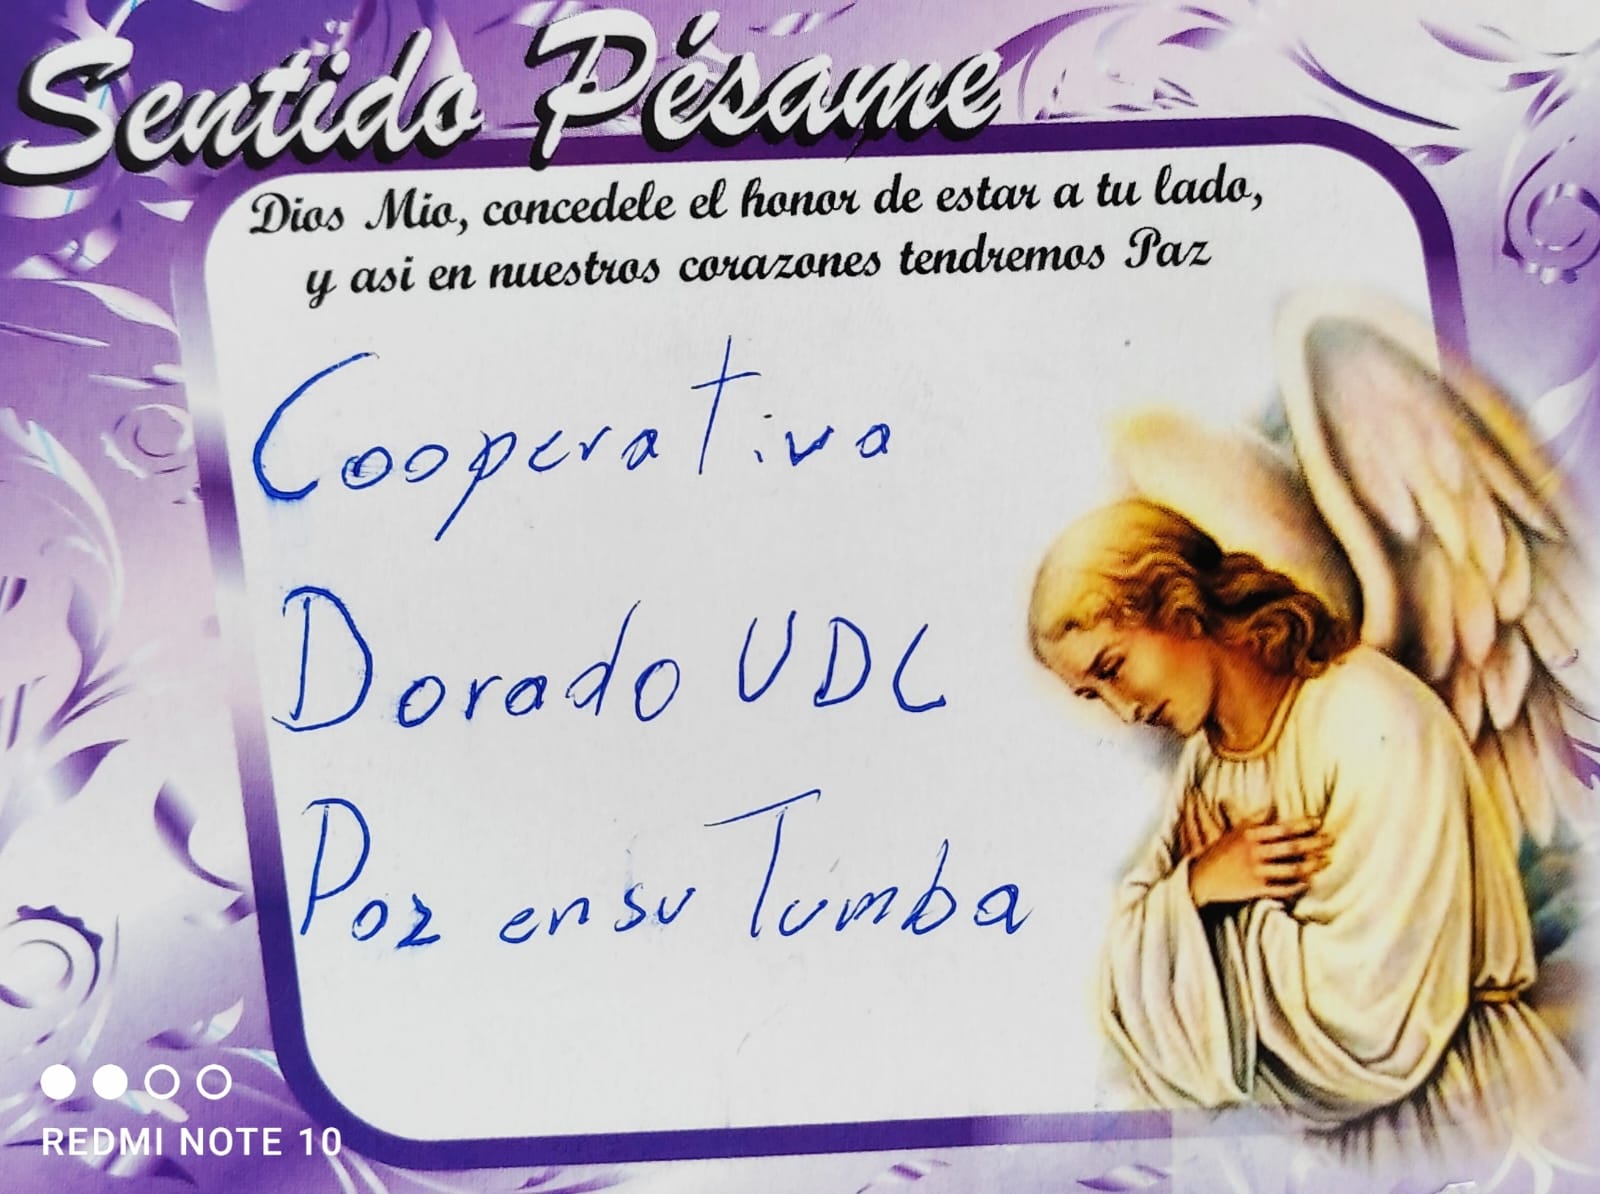 Sentido Pésame
Dios Mio, concedele el honor de estar a tu lado,
y asi en nuestros corazones tendremos Paz
Cooperativa
Dorado UDC
Paz en su Tumba
REDMI NOTE 10